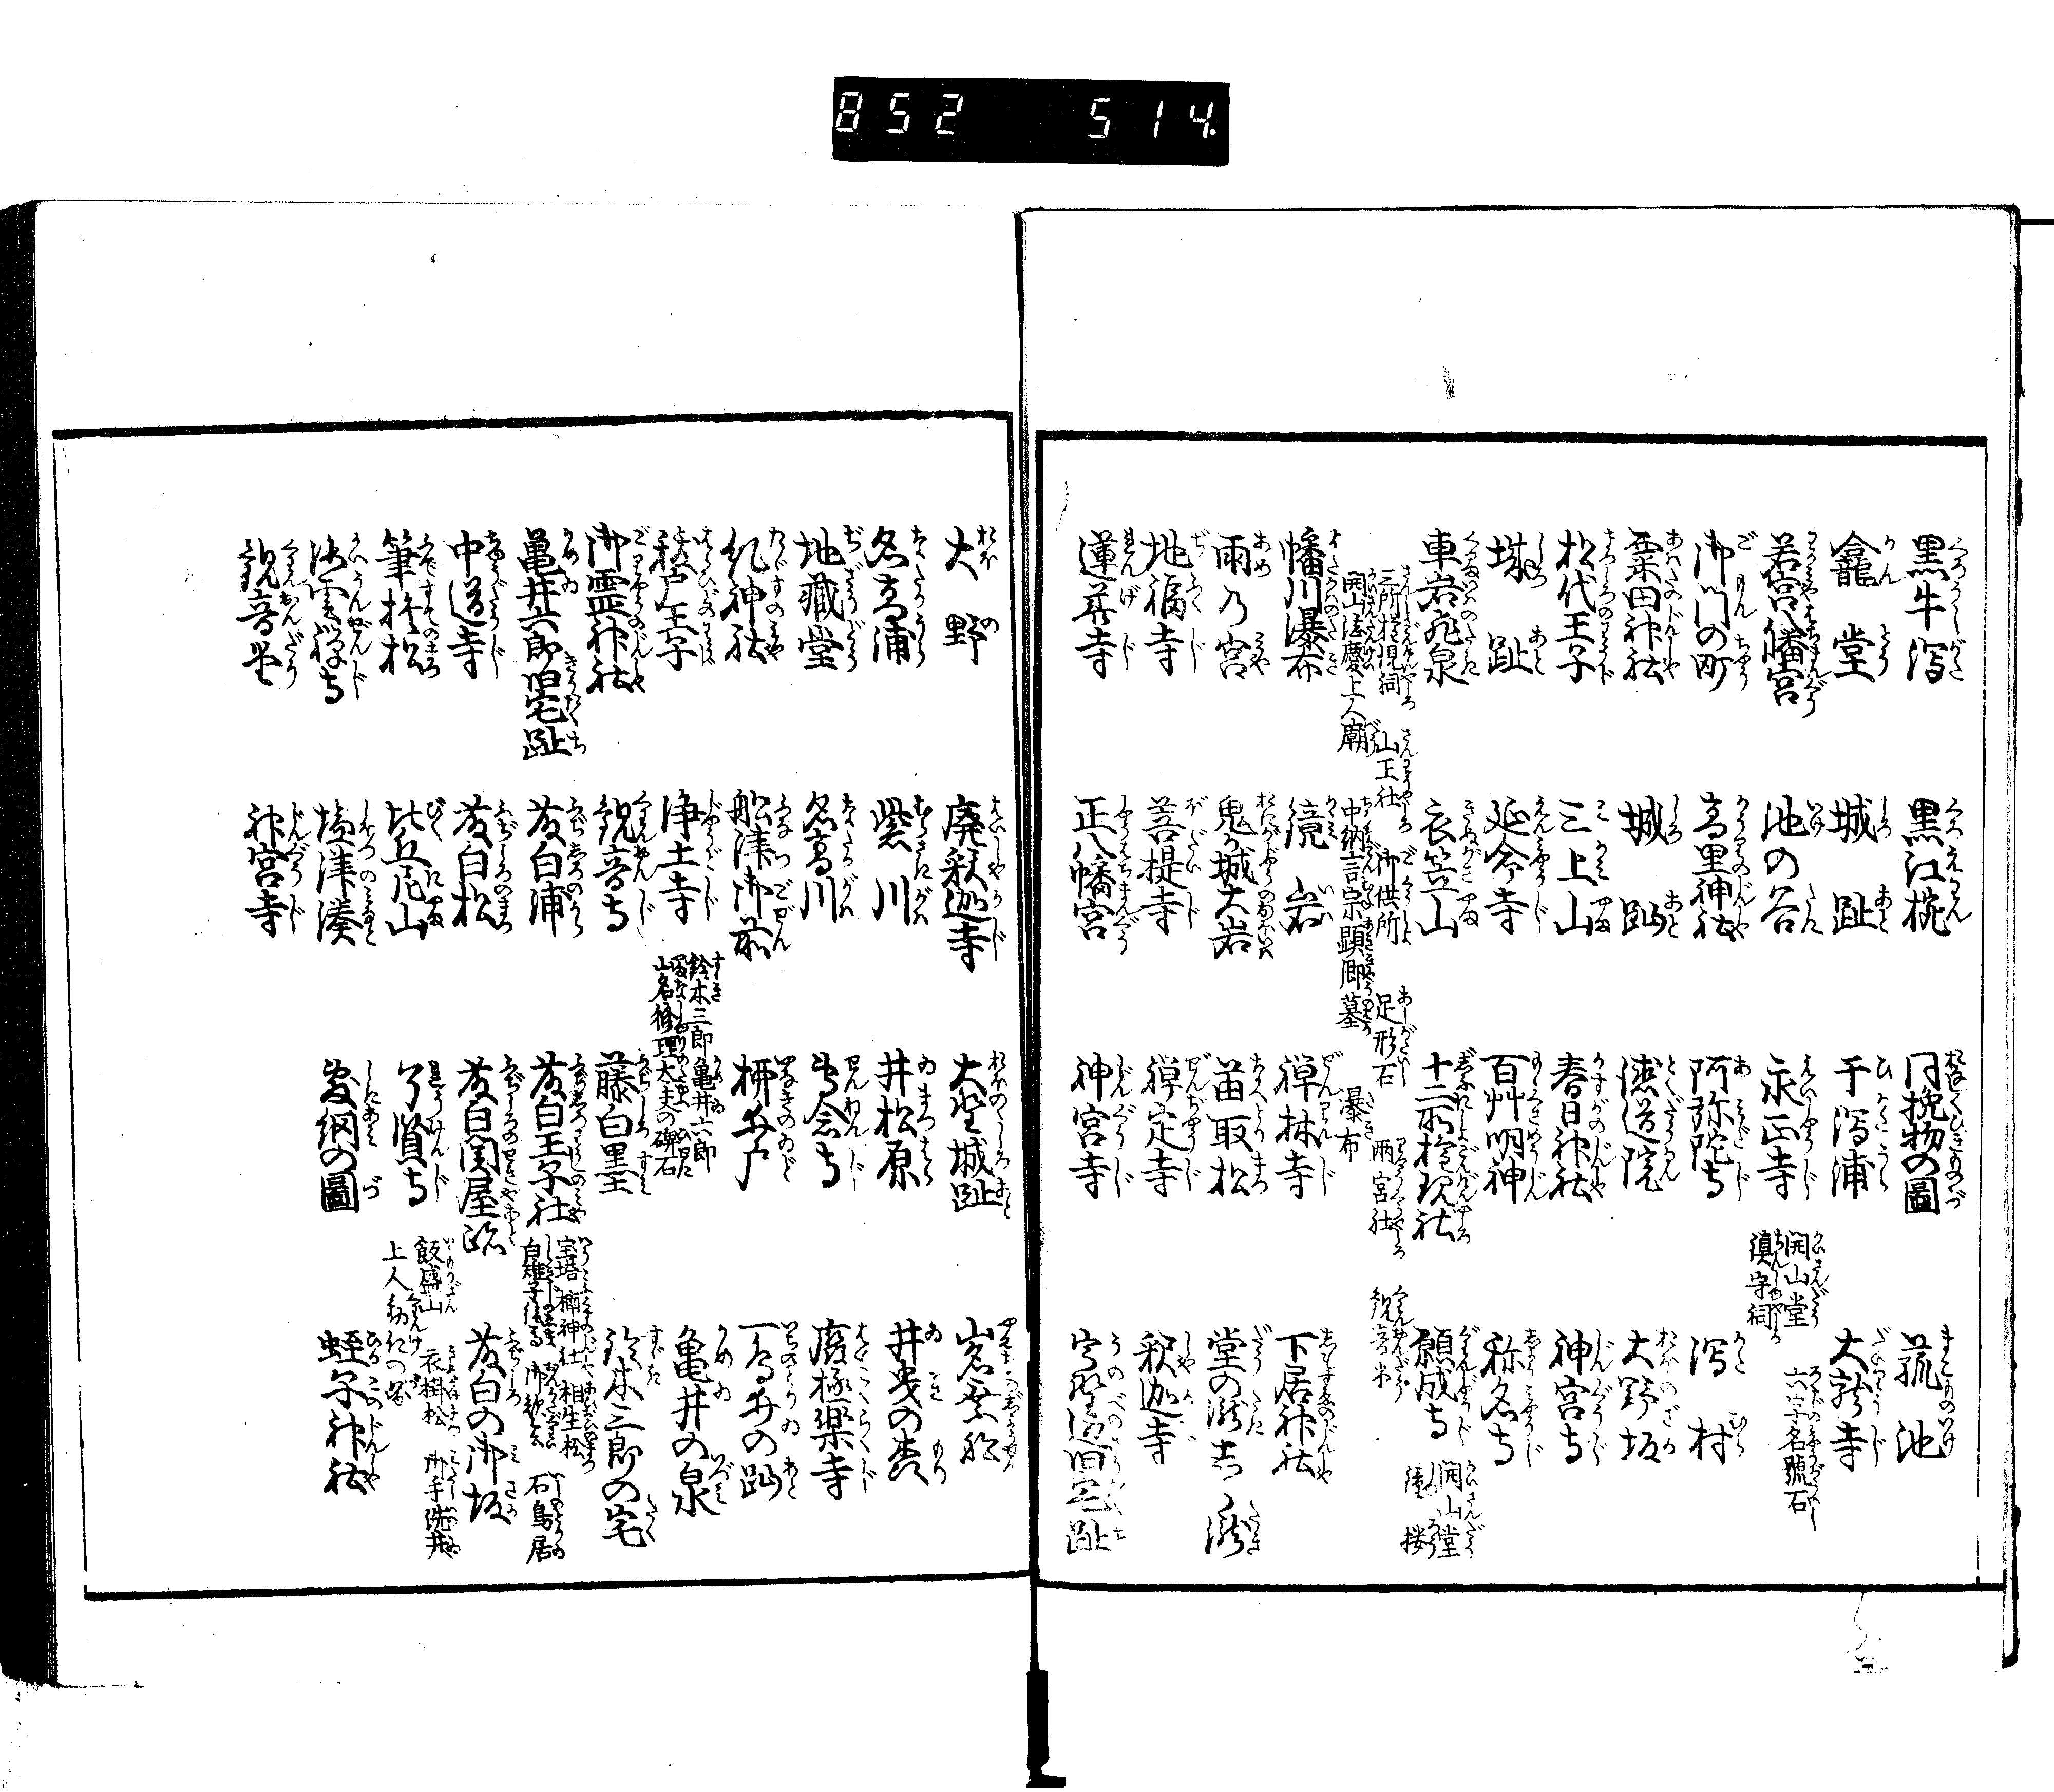 852 514
黒牛潟 黒江椀 同挽物の圖 菰池
龕堂 城趾 干潟浦 大龍寺
若宮八幡宮 池の谷 永正寺 開山堂 鎮守祠 六字名號石
御門の町 高里神社 阿弥陀寺 潟村
粟田神社 城趾 徳道院 大野坂
松代王子 三上山 春日神社 神宮寺
城趾 延命寺 百艸明神 称名寺
車岩飛泉 衣笠山 十二所権現社 願成寺 開山堂 鐘楼
三所権現祠 山王社 御供所 足形石 両宮社 観音堂
開山法慶上人廟 中納言宗顕卿墓 瀑布
幡川瀑布 鏡岩 禅林寺 下居神社
雨乃宮 鬼か城大岩 苗取松 堂の瀧
地福寺 菩提寺 禅定寺 釈迦寺
蓮花寺 正八幡宮 神宮寺 旧宅趾
大野 廃釈迦寺 大野城趾
名高浦 紫川 井松原 井曵の森
地蔵堂 名高川 専念寺 廃極楽寺
糺神社 船津御前 柳井戸 一の鳥井の趾
祓戸王子 浄土寺 鈴木三郎 亀井六郎 山名修理大夫の碑石 亀井の泉
御霊神社 観音寺 藤白墨 鈴木三郎の宅
亀井六郎旧宅趾 藤白浦 藤白王子社 宝塔 楠神社 相生松 石鳥居
中道寺 藤白松 藤白関屋跡 藤白の御坂
筆捨松 比丘尼山 了賢寺 飯盛山 衣掛松 御手洗井 上人
海雲禅寺 塩津湊 圖 蛭子神社
観音堂 神宮寺